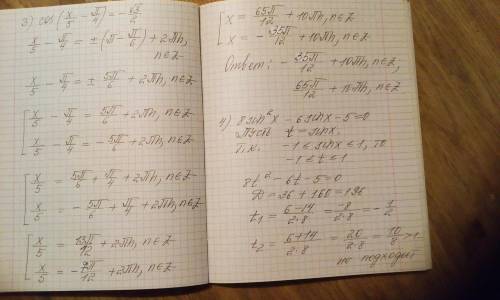 3) cos(x/5 - π/4) = -√3/2
x/5 - π/4 = ±(π - π/6) + 2πn,
n∈Z
x/5 - π/4 = ± 5π/6 + 2πn, n∈Z
[ x/5 - π/4 = 5π/6 + 2πn, n∈Z
x/5 - π/4 = - 5π/6 + 2πn, n∈Z
[ x/5 = 5π/6 + π/4 + 2πn, n∈Z
x/5 = - 5π/6 + π/4 + 2πn, n∈Z
[ x/5 = 13π/12 + 2πn, n∈Z
x/5 = - 7π/12 + 2πn, n∈Z
[ x = 65π/12 + 10πn, n∈Z
x = - 35π/12 + 10πn, n∈Z
Ответ: - 35π/12 + 10πn, n∈Z,
65π/12 + 10πn, n∈Z
4) 8 sin² x - 6 sin x - 5 = 0
Пусть t = sin x.
Т.к. -1 ≤ sin x ≤ 1, то
-1 ≤ t ≤ 1
8t² - 6t - 5 = 0
D = 36 + 160 = 196
t₁ = (6-14)/(2·8) = -8/(2·8) = - 1/2
t₂ = (6+14)/(2·8) = 20/(2·8) = 10/8 > 1
не подходит